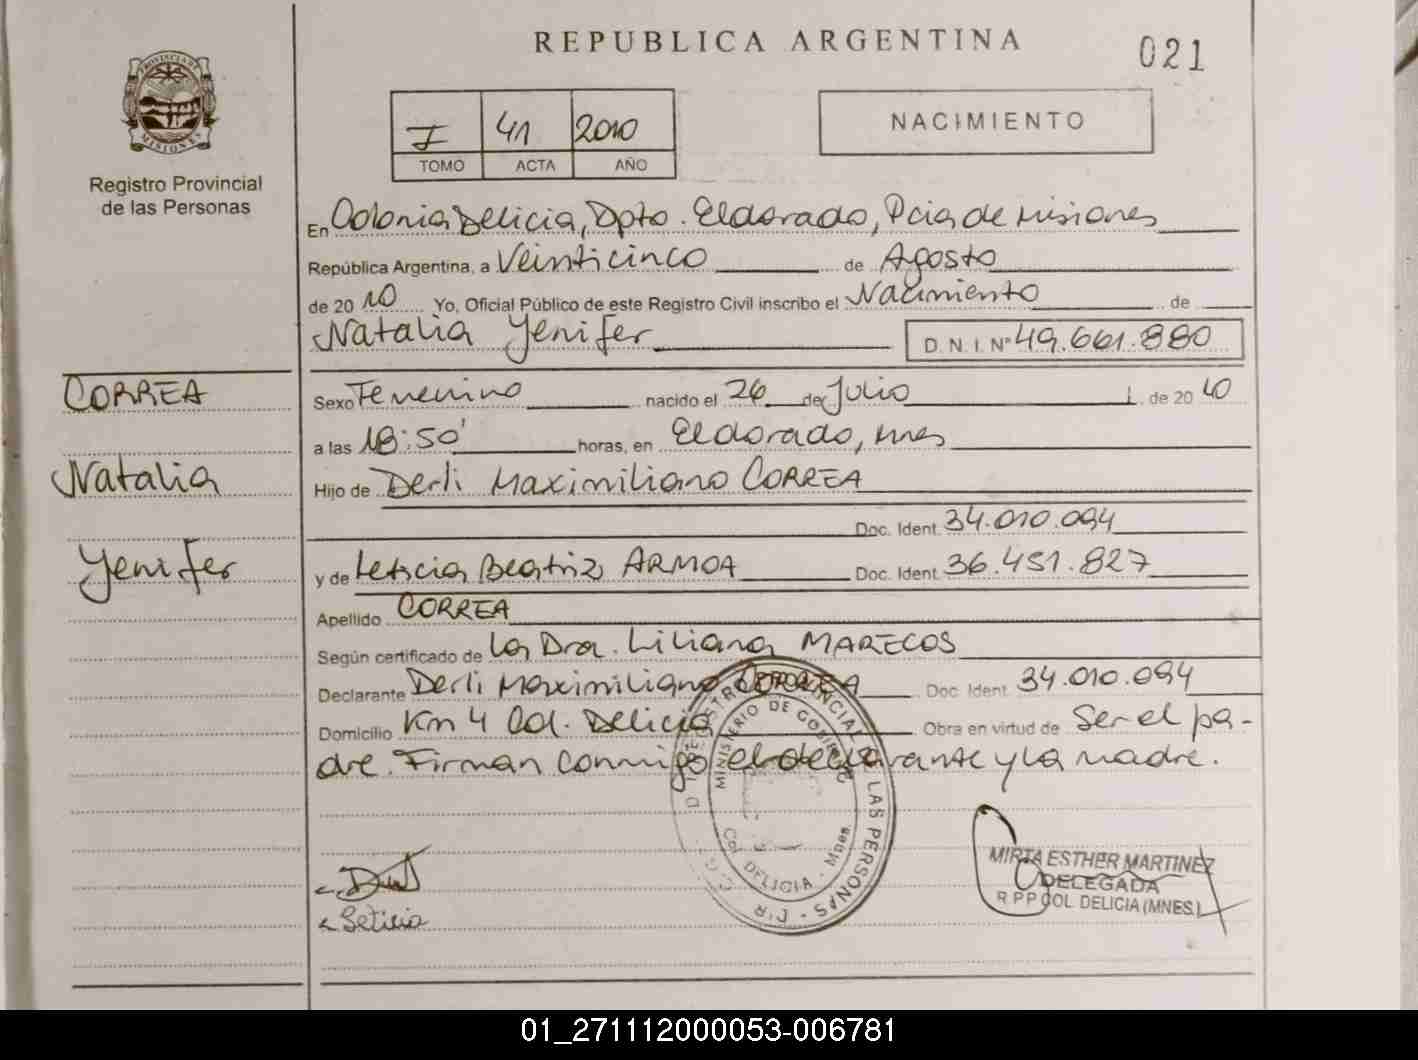 REPUBLICA ARGENTINA
021
PROVINCIA DE MISIONES
Registro Provincial
de las Personas
I 41 2010
TOMO ACTA AÑO
NACIMIENTO
En Colonia Delicia, Dpto. Eldorado, Pcia de Misiones
República Argentina, a Veinticinco de Agosto
de 2010 Yo, Oficial Público de este Registro Civil inscribo el Nacimiento de
Natalia Yenifer D.N.I. Nº 49.661.880
CORREA
Natalia
Yenifer
Sexo Femenino nacido el 26 de Julio de 2010
a las 18:50' horas, en Eldorado, Mnes
Hijo de Derli Maximiliano CORREA
Doc. Ident. 34.010.094
y de Leticia Beatriz ARMOA Doc. Ident. 36.451.827
Apellido CORREA
Según certificado de La Dra. Liliana MARECOS
Declarante Derli Maximiliano CORREA Doc. Ident. 34.010.094
Domicilio Km 4 Col. Delicia Obra en virtud de Ser el pa-
dre. Firman conmigo el declarante y la madre.
MINISTERIO DE GOBIERNO
Col. DELICIA - Mnes
MIRTA ESTHER MARTINEZ
DELEGADA
R.P.P COL. DELICIA (MNES.)
Leticia
01_271112000053-006781